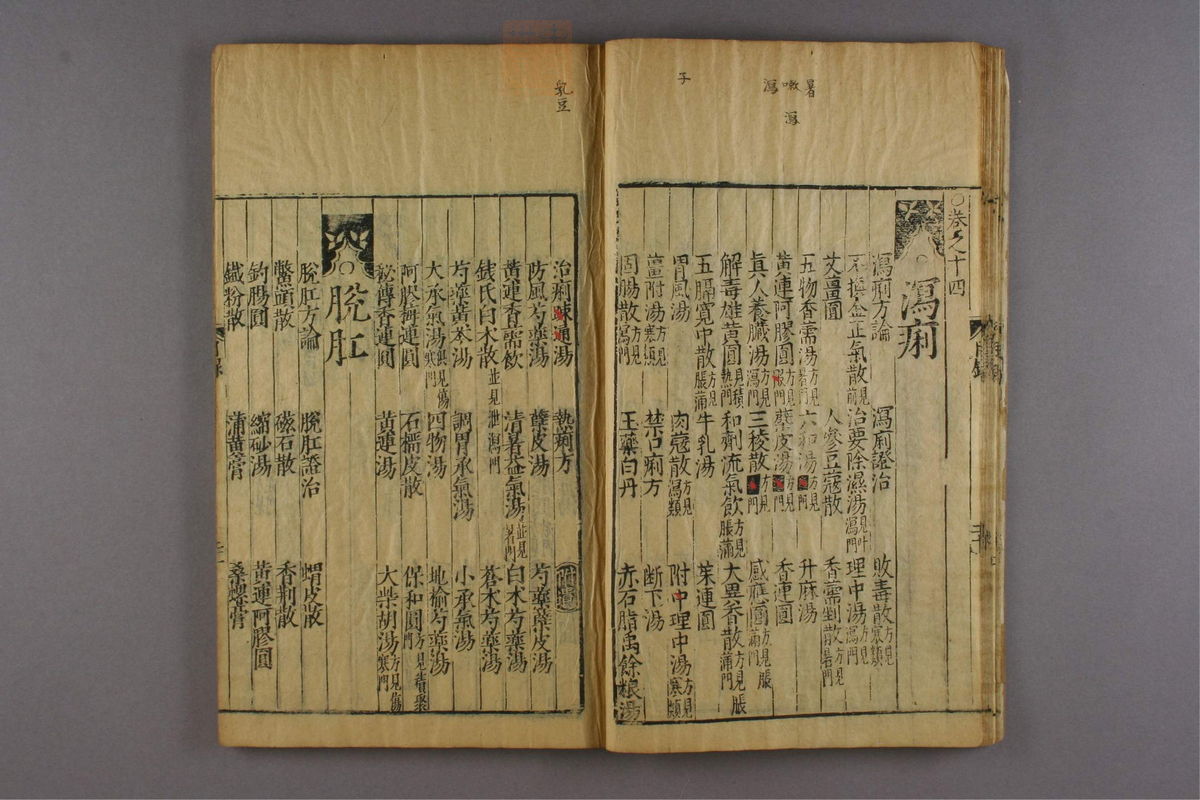 暑
嗽 瀉
瀉
子
○卷之十四
瀉痢
瀉痢方論 瀉痢證治 敗毒散方見寒類
不換金正氣散見前 治要除濕湯見叶瀉門 理中湯方見瀉門
艾薑圓 人參豆蔻散 香薷剉散方見暑門
五物香薷湯方見暑門 六和湯方見門 升麻湯
黃連阿膠圓方見門 蘗皮湯方見門 香連圓
真人養臟湯方見瀉門 三稜散方見門 感應圓方見脹滿門
解毒雄黃圓見積熱門 和劑流氣飲方見脹滿 大異香散方見脹滿門
五膈寬中散方見脹滿 牛乳湯 茱連圓
胃風湯 肉蔻散方見瀉類 附中理中湯方見寒類
薑附湯方見寒類 禁口痢方 斷下湯
固腸散方見瀉門 玉藥白丹 赤石脂禹餘粮湯
乳豆
治痢疎通湯 熱痢方
防風芍藥湯 蘗皮湯 芍藥蘗皮湯
黃連香薷飲 清暑益氣湯並見暑門 白术芍藥湯
錢氏白术散並見泄瀉門 蒼术芍藥湯
芍藥黃芩湯 調胃承氣湯 小承氣湯
大承氣湯並見傷寒門 四物湯 地榆芍藥湯
阿膠梅連圓 石榴皮散 保和圓方見積聚
秘傳香連圓 黃連湯 大柴胡湯方見傷寒門
脫肛
脫肛方論 脫肛證治 蝟皮散
鱉頭散 磁石散 香荆散
釣腸圓 縮砂湯 黃連阿膠圓
鐵粉散 蒲黃膏 桑螺膏